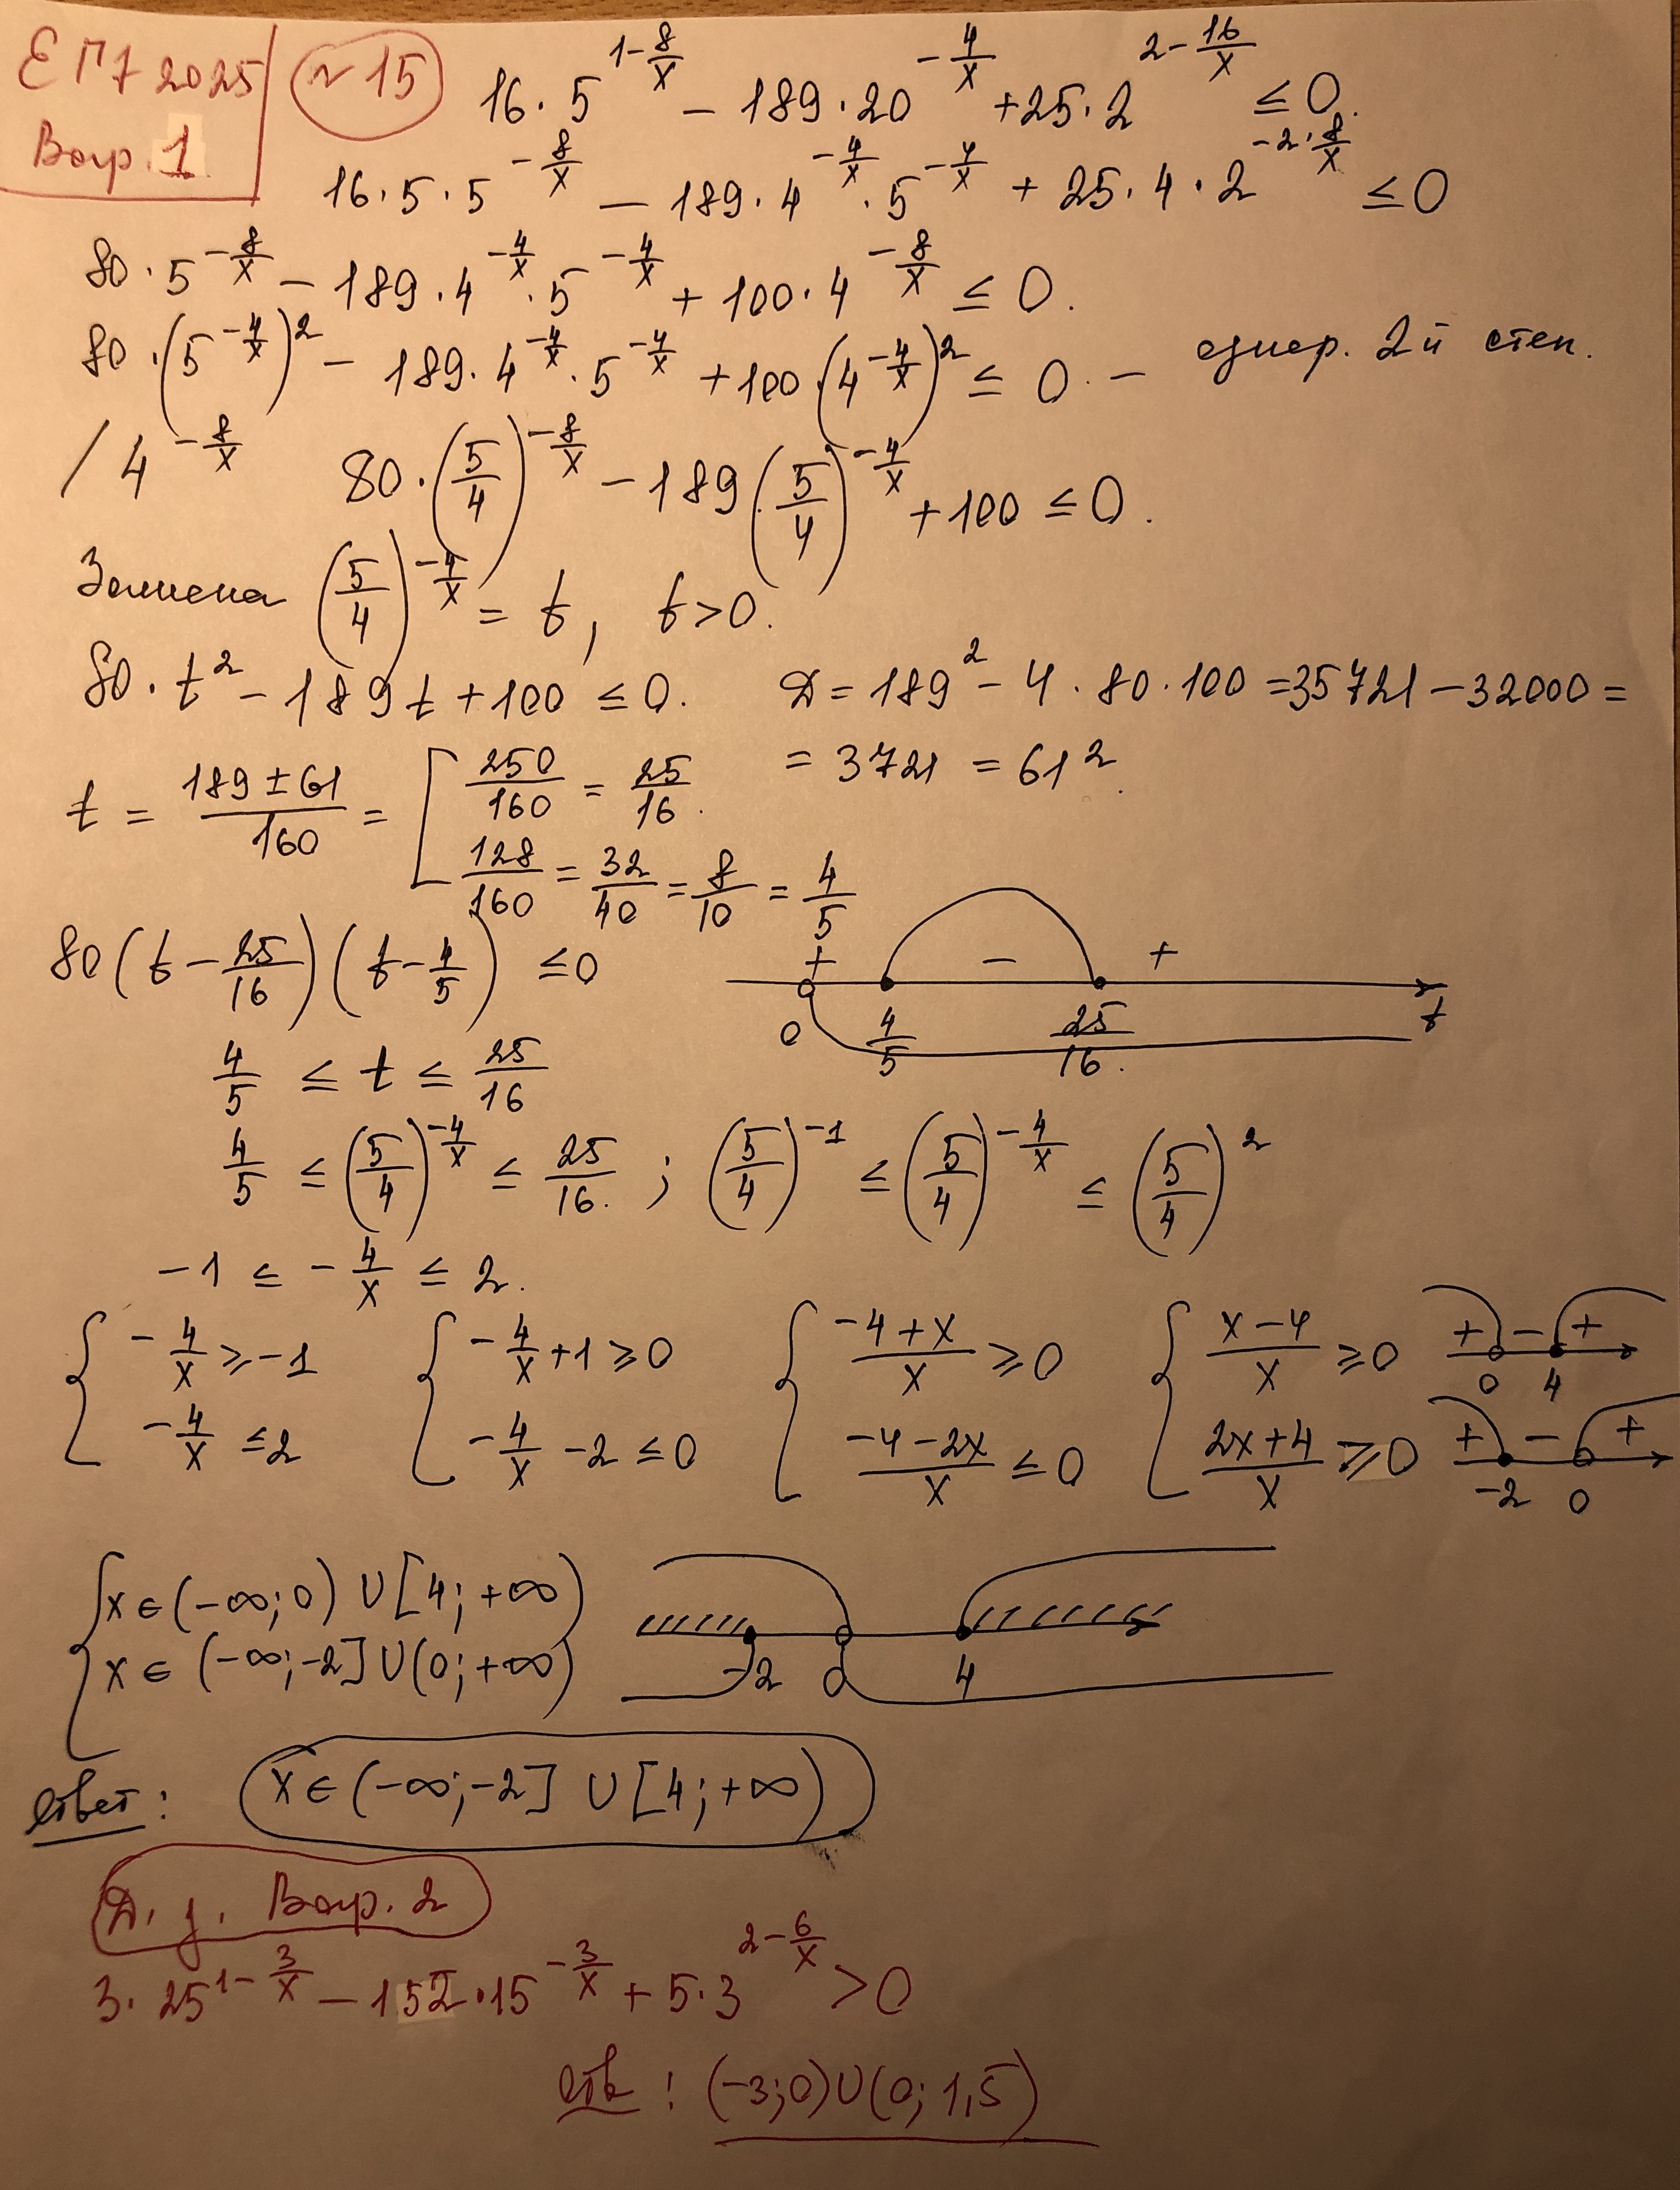 ЕГЭ 2025
Вар. 1
№15
16·5^{1-8/x} - 189·20^{-4/x} + 25·2^{2-16/x} ≤ 0.
16·5·5^{-8/x} - 189·4^{-4/x}·5^{-4/x} + 25·4·2^{-2·8/x} ≤ 0
80·5^{-8/x} - 189·4^{-4/x}·5^{-4/x} + 100·4^{-8/x} ≤ 0.
80·(5^{-4/x})^2 - 189·4^{-4/x}·5^{-4/x} + 100·(4^{-4/x})^2 ≤ 0. - однор. 2й степ.
/ 4^{-8/x} 80·(5/4)^{-8/x} - 189·(5/4)^{-4/x} + 100 ≤ 0.
Замена (5/4)^{-4/x} = t, t>0.
80·t^2 - 189t + 100 ≤ 0. D = 189^2 - 4·80·100 = 35721 - 32000 =
= 3721 = 61^2.
t = (189 ± 61)/160 = [ 250/160 = 25/16.
128/160 = 32/40 = 8/10 = 4/5
80(t - 25/16)(t - 4/5) ≤ 0
+ - +
0 4/5 25/16. t
4/5 ≤ t ≤ 25/16
4/5 ≤ (5/4)^{-4/x} ≤ 25/16. ; (5/4)^{-1} ≤ (5/4)^{-4/x} ≤ (5/4)^2
-1 ≤ -4/x ≤ 2.
{ -4/x ≥ -1 { -4/x + 1 ≥ 0 { (-4+x)/x ≥ 0 { (x-4)/x ≥ 0 + - + 0 4
-4/x ≤ 2 -4/x - 2 ≤ 0 (-4-2x)/x ≤ 0 (2x+4)/x ≥ 0 + - + -2 0
{ x ∈ (-∞; 0) ∪ [4; +∞)
x ∈ (-∞; -2] ∪ (0; +∞)
-2 0 4
Ответ: x ∈ (-∞; -2] ∪ [4; +∞)
Д.з. Вар. 2
3·25^{1-3/x} - 152·15^{-3/x} + 5·3^{2-6/x} > 0
Отв: (-3; 0) ∪ (0; 1,5)